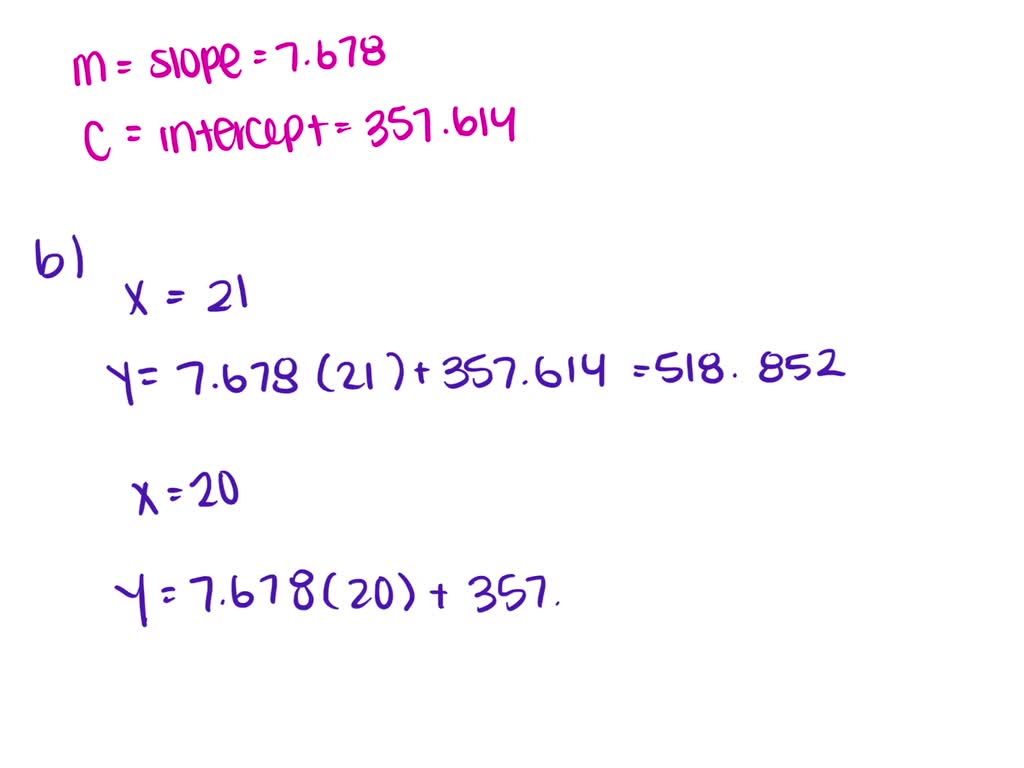 m = slope = 7.678
C = intercept = 357.614
b)
X = 21
Y = 7.678 (21) + 357.614 = 518. 852
X = 20
Y = 7.678(20) + 357.